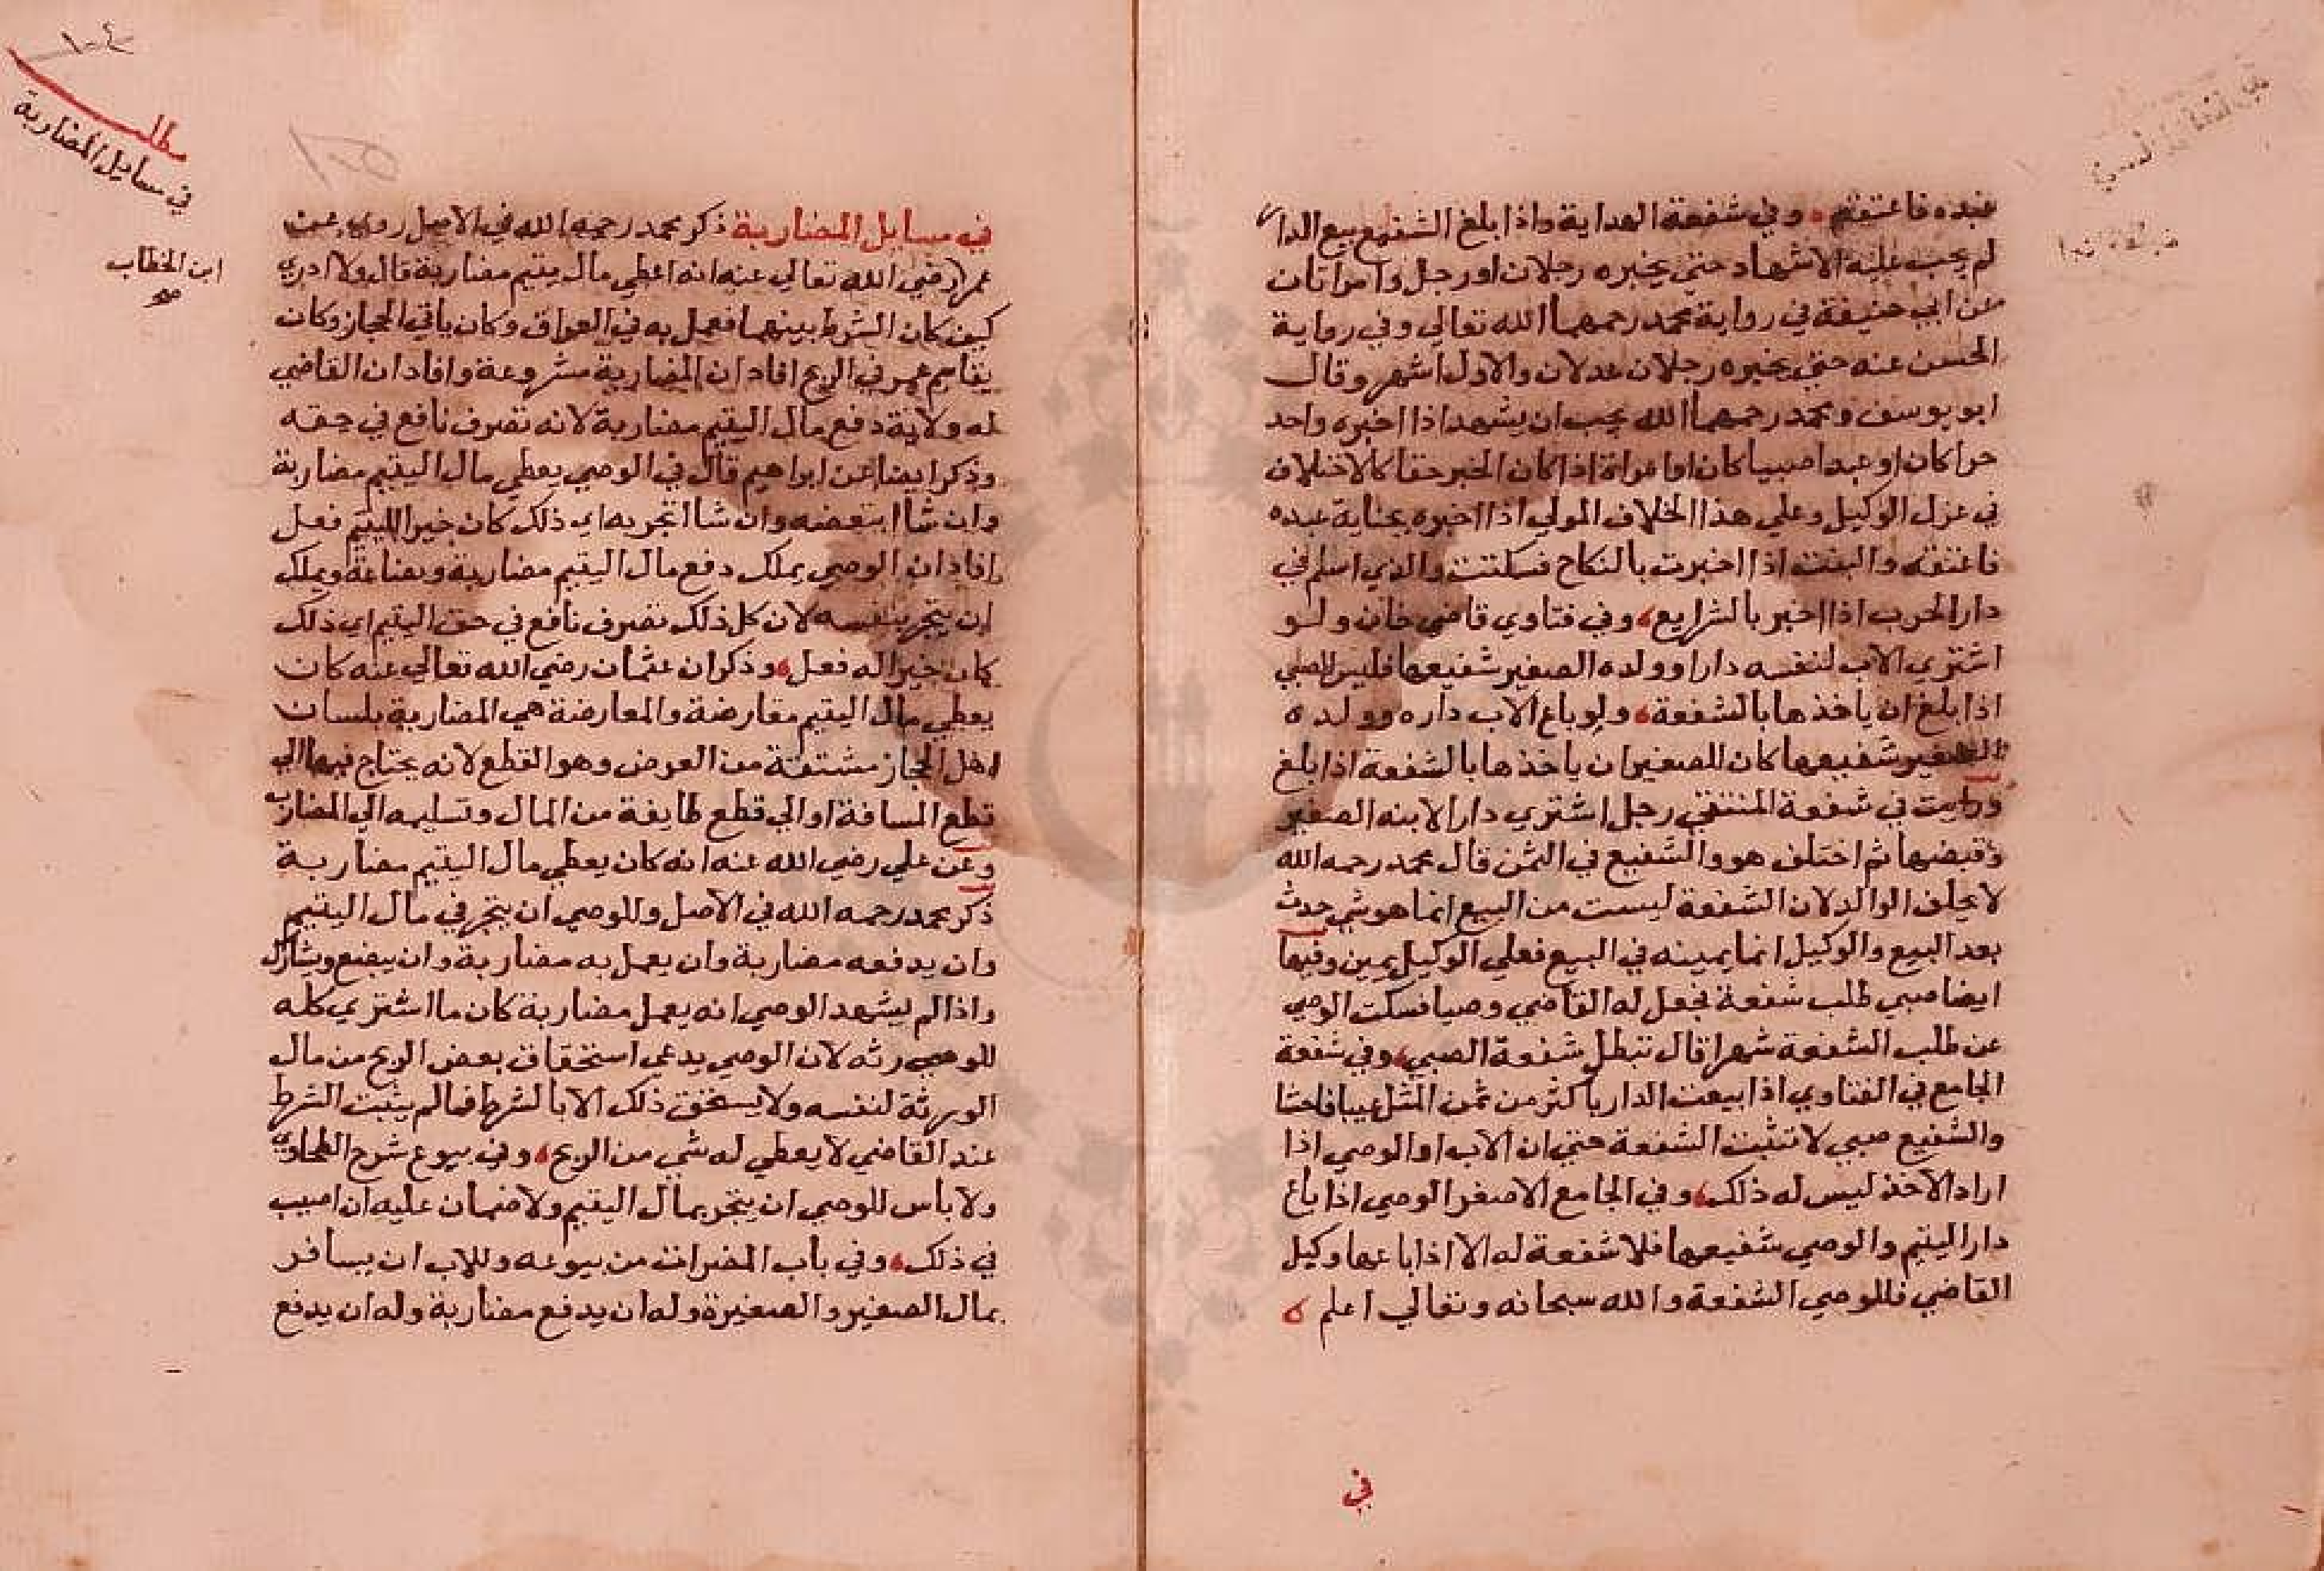 عبده فاعتقه وفي شفعة الهداية واذا بلغ الشفيع بيع الدار
لم يجب عليه الاشهاد حتى يخبره رجلان او رجل وامراتان
عن ابي حنيفة في رواية محمد رحمهما الله تعالي وفي رواية
الحسن عنه حتى يخبره رجلان عدلان والاول اشهر وقال
ابو يوسف ومحمد رحمهما الله يجب ان يشهد اذا اخبره واحد
حرا كان او عبدا صبيا كان او امراة اذا كان الخبر حقا كالاختلاف
في عزل الوكيل وعلي هذا الخلاف المولي اذا اخبره بجناية عبده
فاعتقه والبنت اذا اخبرت بالنكاح فسكتت والذي اسلم في
دار الحرب اذا اخبر بالشرايع وفي فتاوي قاضي خان ولو
اشتري الاب لنفسه دارا وولده الصغير شفيعها فليس للصبي
اذا بلغ ان ياخذها بالشفعة ولو باع الاب داره وولده
الصغير شفيعها كان للصغير ان ياخذها بالشفعة اذا بلغ
ورايت في شفعة المنتقي رجل اشتري دارا لابنه الصغير
وقبضها ثم اختلف هو والشفيع في الثمن قال محمد رحمه الله
لا يحلف الوالد لان الشفعة ليست من البيع انما هو شي حدث
بعد البيع والوكيل انما يمينه في البيع فعلي الوكيل يمين وفيها
ايضا صبي طلب شفعة فجعل له القاضي وصيا فسكت الوصي
عن طلب الشفعة شهرا قال تبطل شفعة الصبي وفي شفعة
الجامع في الفتاوي اذا بيعت الدار باكثر من ثمن المثل عيبا فاحشا
والشفيع صبي لا تثبت الشفعة حتى ان الاب او الوصي اذا
اراد الاخذ ليس له ذلك وفي الجامع الاصغر الوصي اذا باع
دار اليتيم والوصي شفيعها فلا شفعة له الا اذا باعها وكيل
القاضي فللوصي الشفعة والله سبحانه وتعالي اعلم
في
١٠٤
مطلب
في مسايل المضاربة
ابن الخطاب
صح
في مسايل المضاربة ذكر محمد رحمه الله في الاصل روي عن
عمر رضي الله تعالي عنه انه اعطي مال يتيم مضاربة قال ولا ادري
كيف كان الشرط بينهما فعمل به في العراق وكان ياتي الحجاز وكان
يقاسم عمر في الربح افاد ان المضاربة مشروعة وافاد ان القاضي
له ولاية دفع مال اليتيم مضاربة لانه تصرف نافع في حقه
وذكر ايضا عن ابراهيم قال في الوصي يعطي مال اليتيم مضاربة
وان شا ابتعضه وان شا اتجر به اي ذلك كان خيرا لليتيم فعل
افاد ان الوصي يملك دفع مال اليتيم مضاربة وبضاعة ويملك
ان يتجر بنفسه لان كل ذلك تصرف نافع في حق اليتيم اي ذلك
كان خيرا له فعل وذكر ان عثمان رضي الله تعالي عنه كان
يعطي مال اليتيم مقارضة والمعارضة هي المضاربة بلسان
اهل الحجاز مشتقة من العرض وهو القطع لانه يحتاج فيها الي
قطع المسافة او الي قطع طايفة من المال وتسليمه الي المضارب
وعن علي رضي الله عنه انه كان يعطي مال اليتيم مضاربة
ذكر محمد رحمه الله في الاصل وللوصي ان يتجر في مال اليتيم
وان يدفعه مضاربة وان يعمل به مضاربة وان يبضع ويشارك
واذا لم يشهد الوصي انه يعمل مضاربة كان ما اشتري كله
للورثه لان الوصي يدعي استحقاق بعض الربح من مال
الورثة لنفسه ولا يستحق ذلك الا بالشرط فما لم يثبت الشرط
عند القاضي لا يعطي له شي من الربح وفي بيوع شرح الطحاوي
ولا باس للوصي ان يتجر بمال اليتيم ولا ضمان عليه ان اصيب
في ذلك وفي باب المضرات من بيوعه وللاب ان يسافر
بمال الصغير والصغيرة وله ان يدفع مضاربة وله ان يدفع